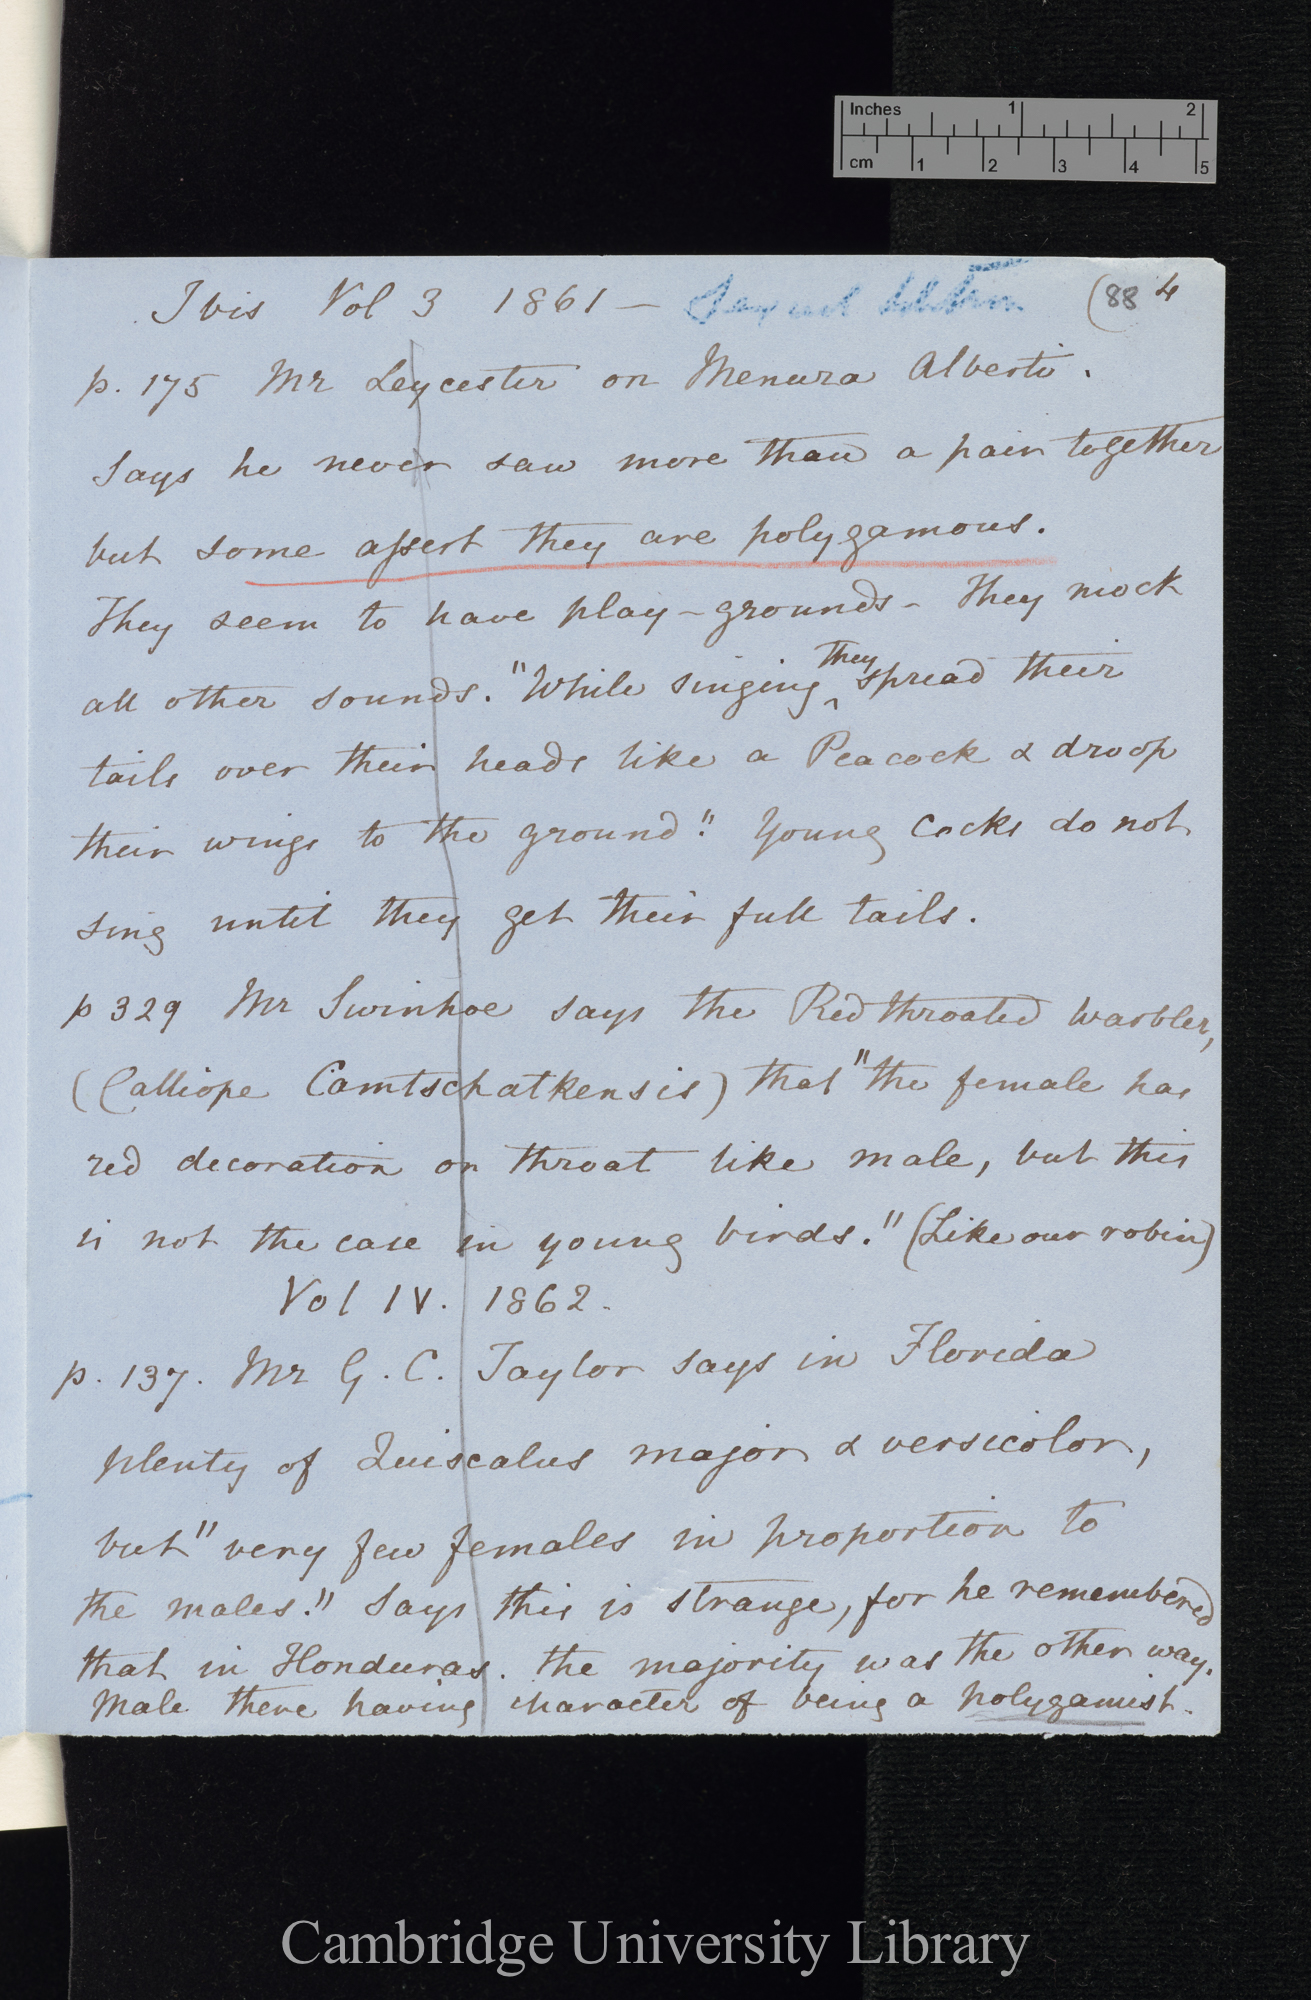 Inches 1 2
cm 1 2 3 4 5
Ibis Vol 3 1861 — Sexual Selection (88 4
p. 175 Mr Leycester on Menura Alberti.
Says he never saw more than a pair together
but some assert they are polygamous.
They seem to have play-grounds - They mock
all other sounds. "While singing they spread their
tails over their heads like a Peacock & droop
their wings to the ground". Young cocks do not
sing until they get their full tails.
p 329 Mr Swinhoe says the Red throated Warbler,
(Calliope Camtschatkensis) that "the female has
red decoration on throat like male, but this
is not the case in young birds." (Like our robin)
Vol IV. 1862.
p. 137. Mr G. C. Taylor says in Florida
plenty of Quiscalus major & versicolor,
but "very few females in proportion to
the males." Says this is strange, for he remembered
that in Honduras. the majority was the other way.
Male there having character of being a polygamist.
Cambridge University Library